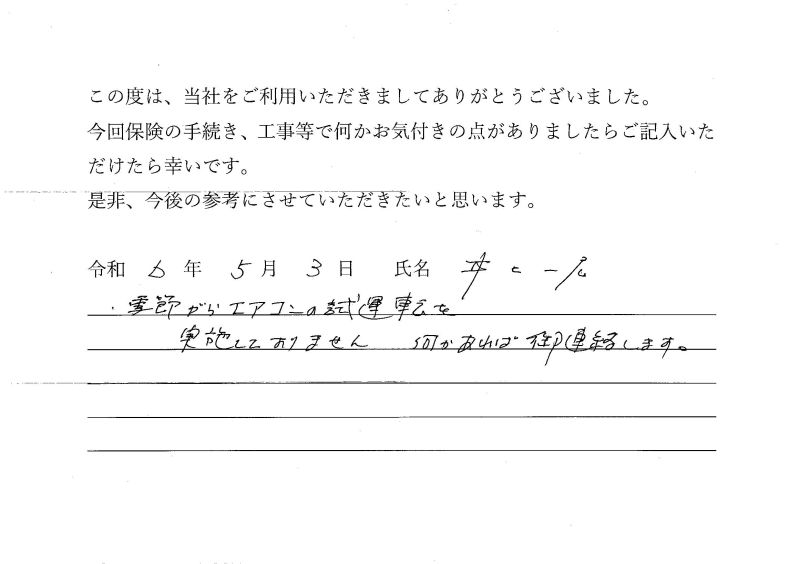 この度は、当社をご利用いただきましてありがとうございました。
今回保険の手続き、工事等で何かお気付きの点がありましたらご記入いた
だけたら幸いです。
是非、今後の参考にさせていただきたいと思います。
令和 6 年 5 月 3 日 氏名 井上一
・季節がらエアコンの試運転を
実施しておりません 何かあれば御連絡します。